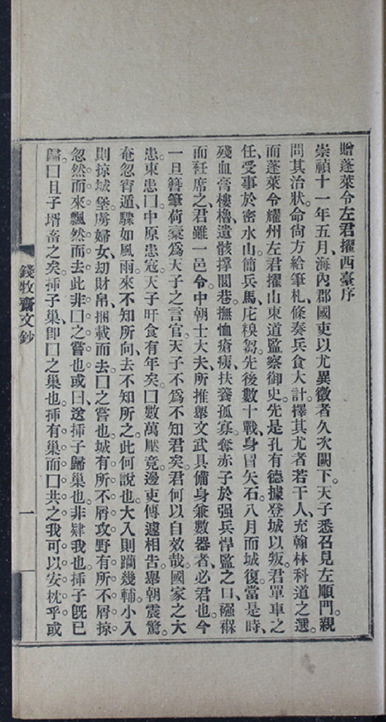 贈蓬萊令左君擢西臺序
崇禎十一年五月、海內郡國吏以尤異徵者久次闕下。天子悉召見左順門。親
問其治狀、命尙方給筆札、條奏兵食大計、擇其尤者若干人、充翰林科道之選。
而蓬萊令耀州左君擢山東道監察御史。先是孔有德據登城以叛、君單車之
任、受事於密水山。簡兵馬、庀糗芻、先後數十戰、身冒矢石、八月而城復。當是時、
殘血膏樓櫓、遺骸撑閭巷、撫恤瘡痍、扶養孤寡、奪赤子於强兵悍監之口、襁褓
而衽席之。君雖一邑令、中朝士大夫所推擧文武具備身兼數器者必君也。今
一旦簪筆荷橐爲天子之言官。天子不爲不知君矣。君何以自效哉。國家之大
患、東患囗、中原患寇。天子旰食有年矣。囗數萬壓竟、邊吏傳遽相吿、擧朝震驚。
奄忽宵遁、驟如風雨。來不知所向、去不知所之。此何說也。大入則躪畿輔、小入
則掠城堡、虜婦女、刼財帛、捆載而去。囗之嘗也、城有所不屑攻、野有所不屑掠。
忽然而來、飄然而去、此非囗之嘗也。或曰、送揷子歸巢也。非肄我也。揷子旣已
歸囗、且子壻畜之矣。揷子巢、卽囗之巢也。揷有巢而囗共之、我可以安枕乎。或
錢牧齋文鈔
一